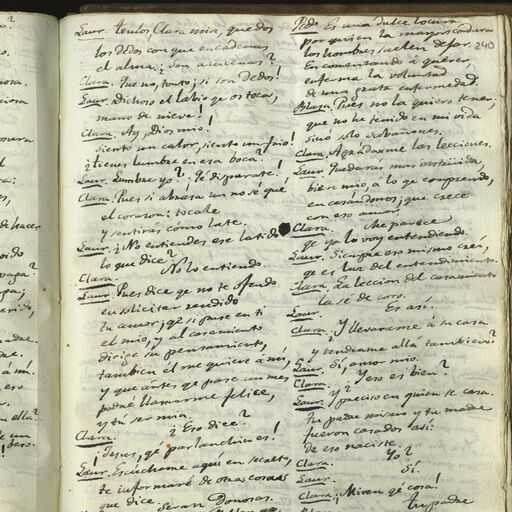 Laur. Tenlos, Clara mia, que dos
los dedos con que encadenas
el alma: ¿son azucenas?
Clara. Que no, tonto, si son dedos!
Laur. Dichoso el labio qe os toca,
mano de nieve!
Clara. Ay, Dios mio!
siento un calor, siento un frio!
¿tienes lumbre en esa boca?
Laur. Lumbre yo? Qé disparate!
Clara. Pues si abrasa un no sé que
el corazon: tocale
y sentiras como late.
Laur. ¿No entiendes ese latido
lo que dice?
Clara. No lo entiendo
Laur. Pues dice qe no te ofendo
en solicitar rendido
tu amor; qe si puse en ti
el mio, y al casamiento
dirige su pensamiento,
tambien él me quiere á mí,
y que antes qe pase un mes
podré llamarme felice,
y tu ser mia.
Clara. ¿Eso dice?
¡Jesus, qé parlanchin es!
Laur. Escúchame aquí en secreto,
te informaré de otras cosas
que dice.
Seran Donosas.
240
Es una dulce locura
por quien la mayor cordura
los hombres suelen dejar.
En comenzando á querer,
enferma la voluntad
de una grata enfermedad
Pues no la quiero tener,
que no he tenido en mi vida
sinó solo sabañones.
Clara. Agradanme las lecciones.
Laur. Quedaras mas instruida,
bien mio, á lo qe comprendo,
en casandonos; que crece
con eso amor.
Clara. Me parece
qe ya lo voy entendiendo.
Laur. Siempre eso mismo creí,
qe es luz del entendimiento.
Clara. La leccion del casamiento
la sé de coro.
Laur. Es así.
Clara. ¿Y llevarame á su casa
y tendrame allá tambien?
Laur. Sí, amor mio.
Clara. Y eso es bien?
Laur. Y preciso en quien se casa.
tu padre mismo y tu madre
fueron casados así:
de eso naciste.
Clara. Yo?
Laur. Sí.
Clara. ¡Miren qé cosa!
tu padre